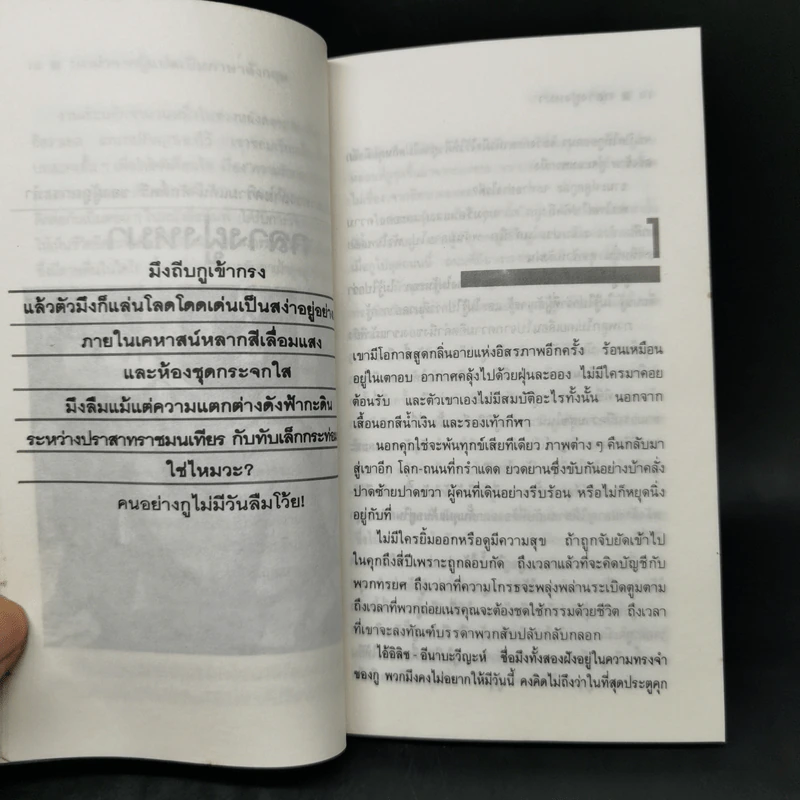 มึงถีบกูเข้ากรง
แล้วตัวมึงก็แล่นโลดโดดเด่นเป็นสง่าอยู่อย่าง
ภายในเคหาสน์หลากสีเลื่อมแสง
และห้องชุดกระจกใส
มึงลืมแม้แต่ความแตกต่างดังฟ้ากะดิน
ระหว่างปราสาทราชมนเทียร กับทับเล็กกระท่อม
ใช่ไหมวะ?
คนอย่างกูไม่มีวันลืมโว้ย!
1
เขามีโอกาสสูดกลิ่นอายแห่งอิสรภาพอีกครั้ง ร้อนเหมือน
อยู่ในเตาอบ อากาศคลุ้งไปด้วยฝุ่นละออง ไม่มีใครมาคอย
ต้อนรับ และตัวเขาเองไม่มีสมบัติอะไรทั้งนั้น นอกจาก
เสื้อนอกสีน้ำเงิน และรองเท้ากีฬา
นอกคุกใช่จะพ้นทุกข์เสียทีเดียว ภาพต่าง ๆ คืนกลับมา
สู่เขาอีก โลก-ถนนที่กรำแดด ยวดยานซึ่งขับกันอย่างบ้าคลั่ง
ปาดซ้ายปาดขวา ผู้คนที่เดินอย่างรีบร้อน หรือไม่ก็หยุดนิ่ง
อยู่กับที่
ไม่มีใครยิ้มออกหรือดูมีความสุข ถ้าถูกจับยัดเข้าไป
ในคุกถึงสี่ปีเพราะถูกลอบกัด ถึงเวลาแล้วที่จะคิดบัญชีกับ
พวกทรยศ ถึงเวลาที่ความโกรธจะพลุ่งพล่านระเบิดตูมตาม
ถึงเวลาที่พวกถ่อยเนรคุณจะต้องชดใช้กรรมด้วยชีวิต ถึงเวลา
ที่เขาจะลงทัณฑ์บรรดาพวกสับปลับกลับกลอก
ไอ้อิลิช - อีนาบะวียะห์ ชื่อมึงทั้งสองฝังอยู่ในความทรงจำ
ของกู พวกมึงคงไม่อยากให้มีวันนี้ คงคิดไม่ถึงว่าในที่สุดประตูคุก